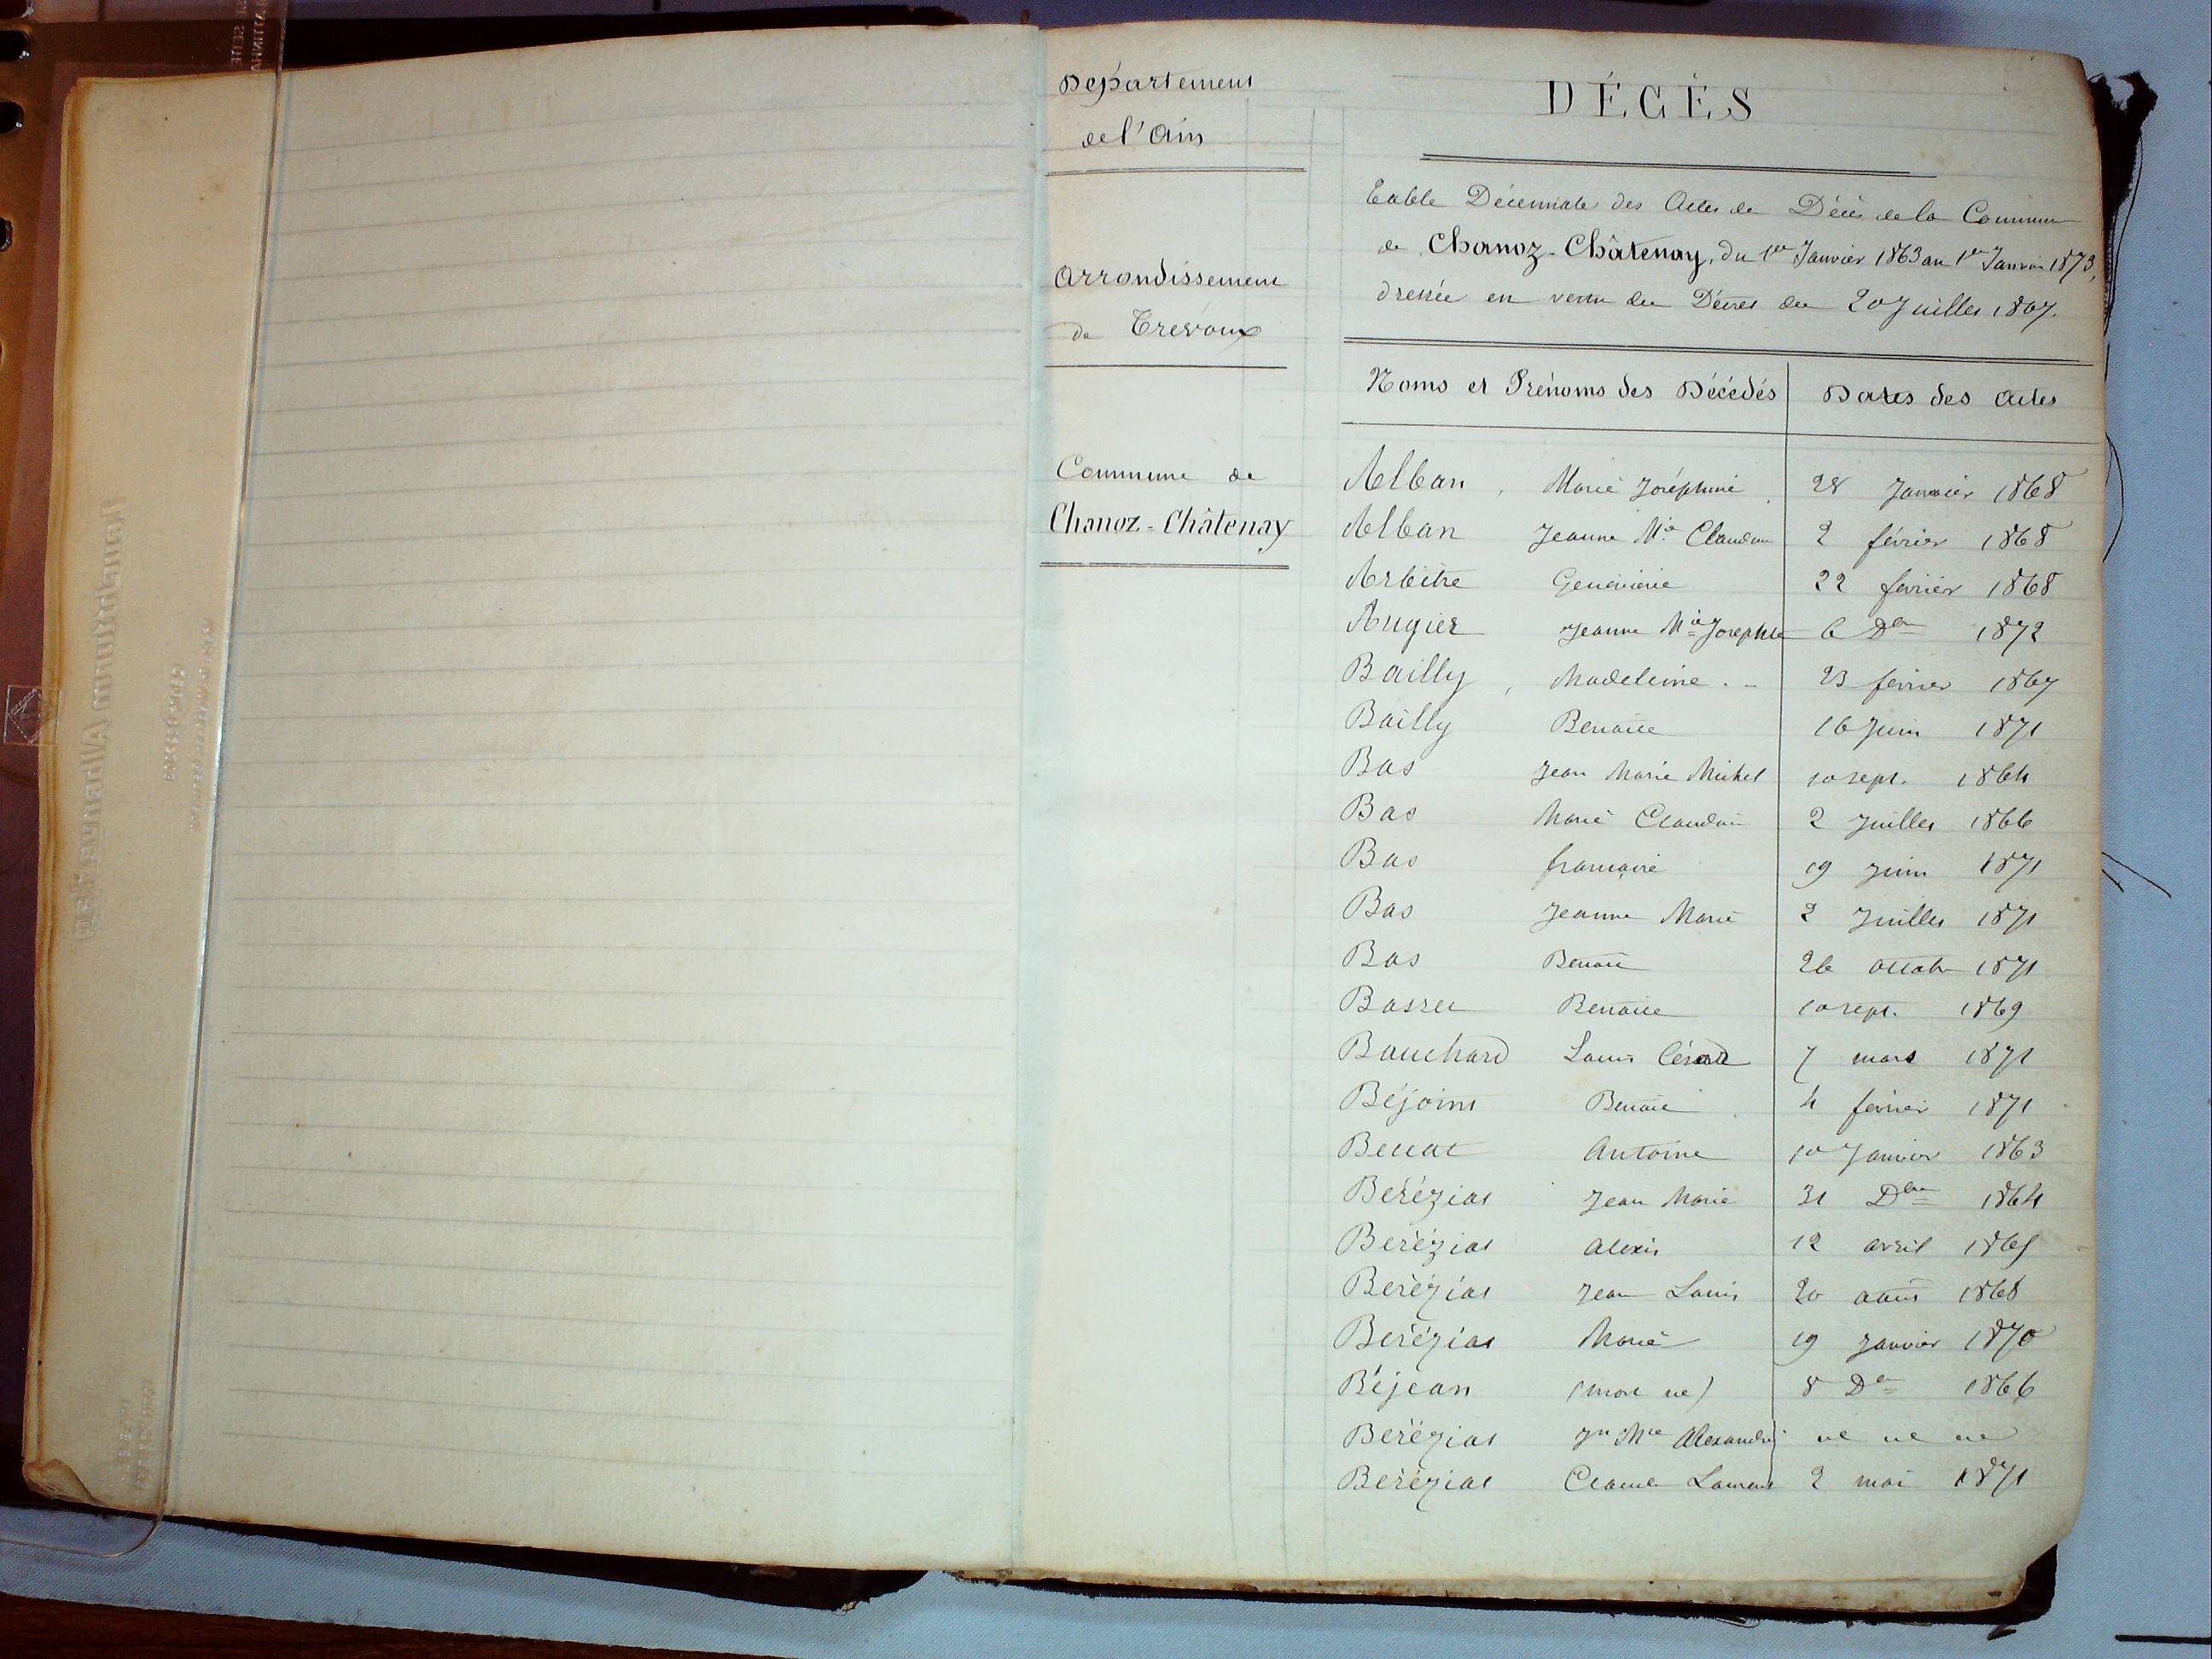 Département
de l'Ain
Arrondissement
de Trevoux
Commune de
Chanoz-Châtenay
DÉCÈS
Table Décennale des Actes de Décès de la Commune
de Chanoz-Châtenay, du 1er Janvier 1863 au 1er Janvier 1873,
dressée en vertu du Décret du 20 Juillet 1807.
Noms et Prénoms des Décédés Dates des Actes
Alban, Marie Joséphine 28 Janvier 1868
Alban Jeanne Mie Claudine 2 février 1868
Arbitre Geneviève 22 février 1868
Augier Jeanne Mie Josephte 6 Dbre 1872
Bailly, Madeleine 23 février 1867
Bailly Benoite 16 Juin 1871
Bas Jean Marie Michel 10 sept. 1864
Bas Marie Claudine 2 Juillet 1866
Bas françoise 19 Juin 1871
Bas Jeanne Marie 2 Juillet 1871
Bas Benoit 26 octobre 1871
Basset Benoite 10 sept. 1869
Bouchard Louis 7 mars 1871
Béjoint Benoit 4 février 1871
Antoine 10 Janvier 1863
Beréziat Jean Marie 31 Dbre 1864
Beréziat Alexis 12 avril 1865
Beréziat Jean Louis 20 août 1868
Beréziat Marie 19 Janvier 1870
Béjean (mort né) 8 Dbre 1866
Beréziat Jn Mie Alexandre
Beréziat Claude Laurent 2 mai 1871